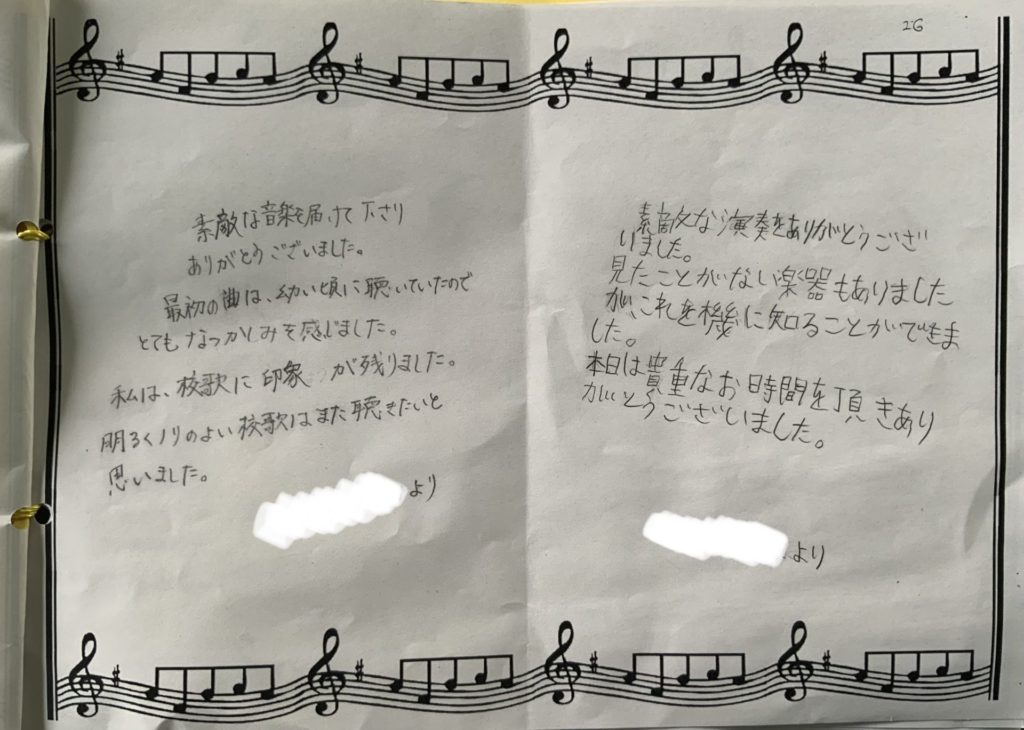 2G
素敵な音楽を届けて下さり
ありがとうございました。
最初の曲は、幼い頃に聴いていたので
とてもなつかしみを感じました。
私は、校歌に印象が残りました。
明るくノリのよい校歌はまた聴きたいと
思いました。
より
素敵な演奏をありがとうござ
いました。
見たことがない楽器もありました
が、これを機に知ることができま
した。
本日は貴重なお時間を頂きあり
がとうございました。
より